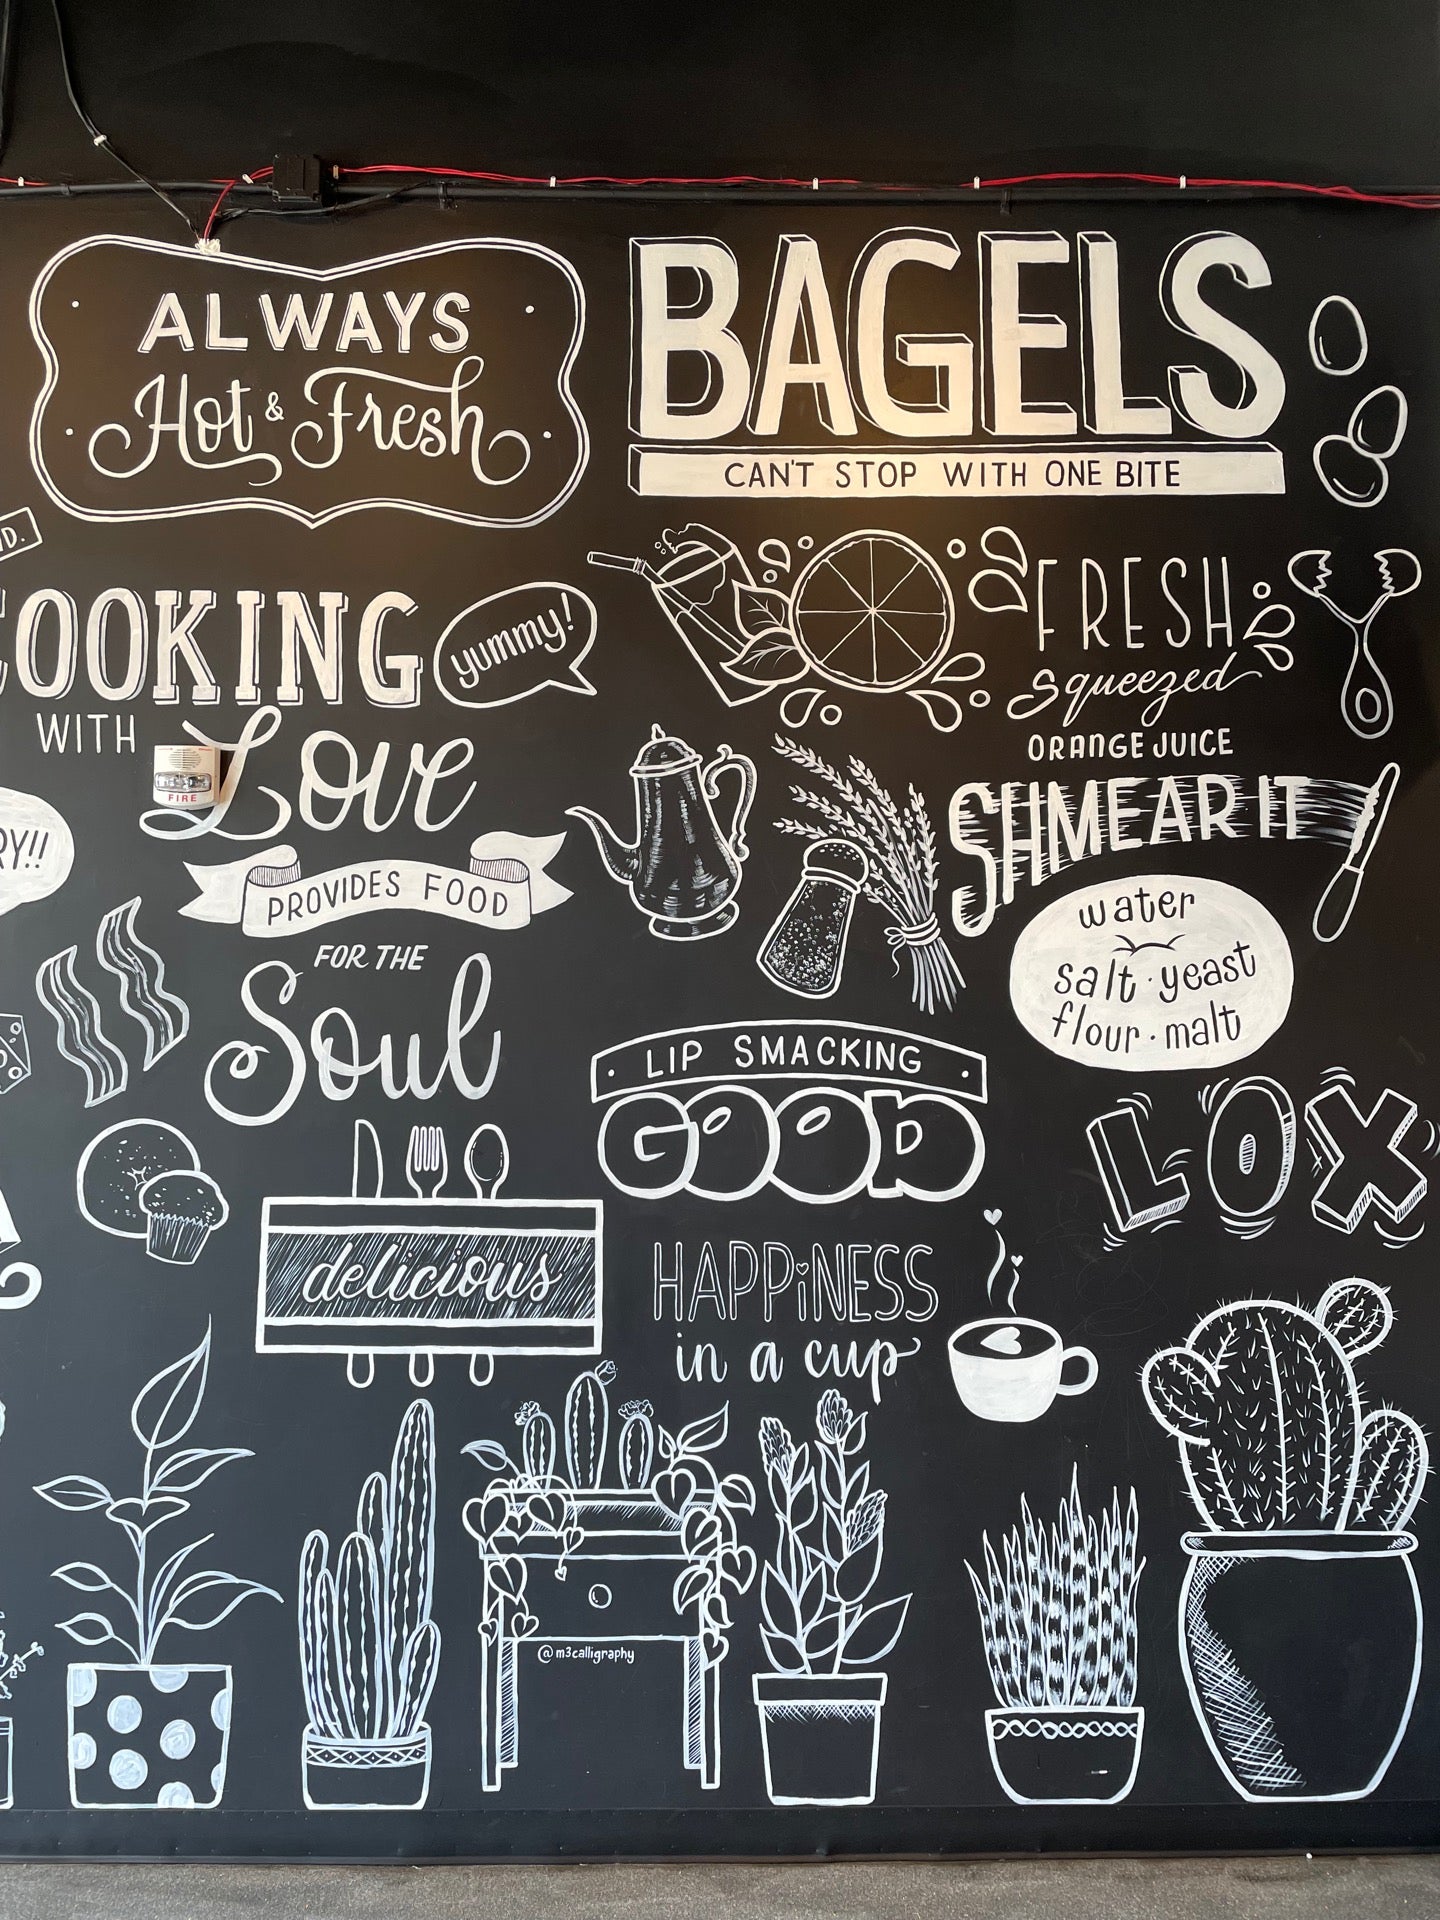 ALWAYS
Hot & Fresh
BAGELS
CAN'T STOP WITH ONE BITE
COOKING
yummy!
WITH
Love
FIRE
PROVIDES FOOD
FOR THE
Soul
FRESH
squeezed
ORANGE JUICE
SHMEAR IT
water
salt · yeast
flour · malt
LIP SMACKING
GOOD
LOX
delicious
HAPPiNESS
in a cup
@m3calligraphy